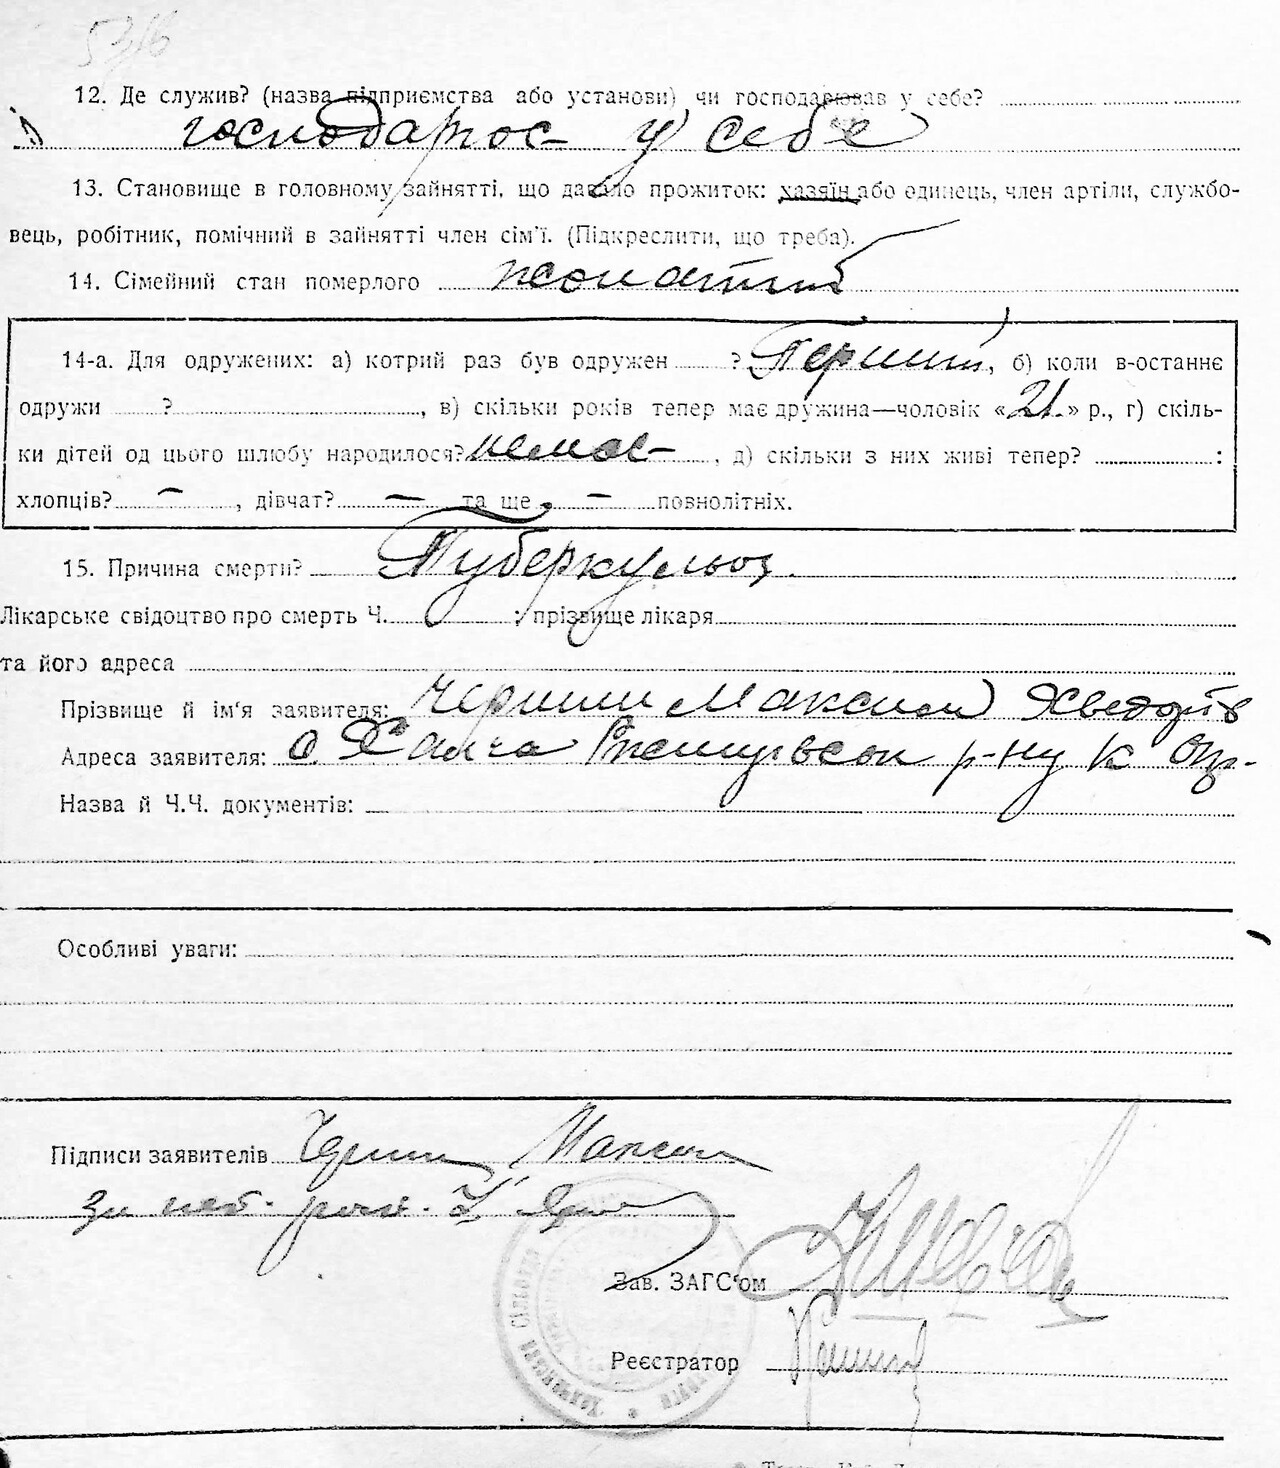 12. Де служив? (назва підприємства або установи) чи господарював у себе?
господарює у себе
13. Становище в головному зайнятті, що давало прожиток: хазяїн або одинець, член артіли, службо-
вець, робітник, помічний в зайнятті член сім'ї. (Підкреслити, що треба).
14. Сімейний стан померлого жонатий
14-а. Для одружених: а) котрий раз був одружен ? Перший, б) коли в-останнє
одружи ? , в) скільки років тепер має дружина—чоловік «21» р., г) скіль-
ки дітей од цього шлюбу народилося? немає , д) скільки з них живі тепер? :
хлопців? — , дівчат? — та ще — повнолітніх.
15. Причина смерти? Туберкульоз
Лікарське свідоцтво про смерть Ч. : прізвище лікаря
та його адреса
Прізвище й ім'я заявителя: Максим
Адреса заявителя: р-ну К Окр-
Назва й Ч.Ч. документів:
Особливі уваги:
Підписи заявителів Максим
За
Зав. ЗАГС'ом
Реєстратор